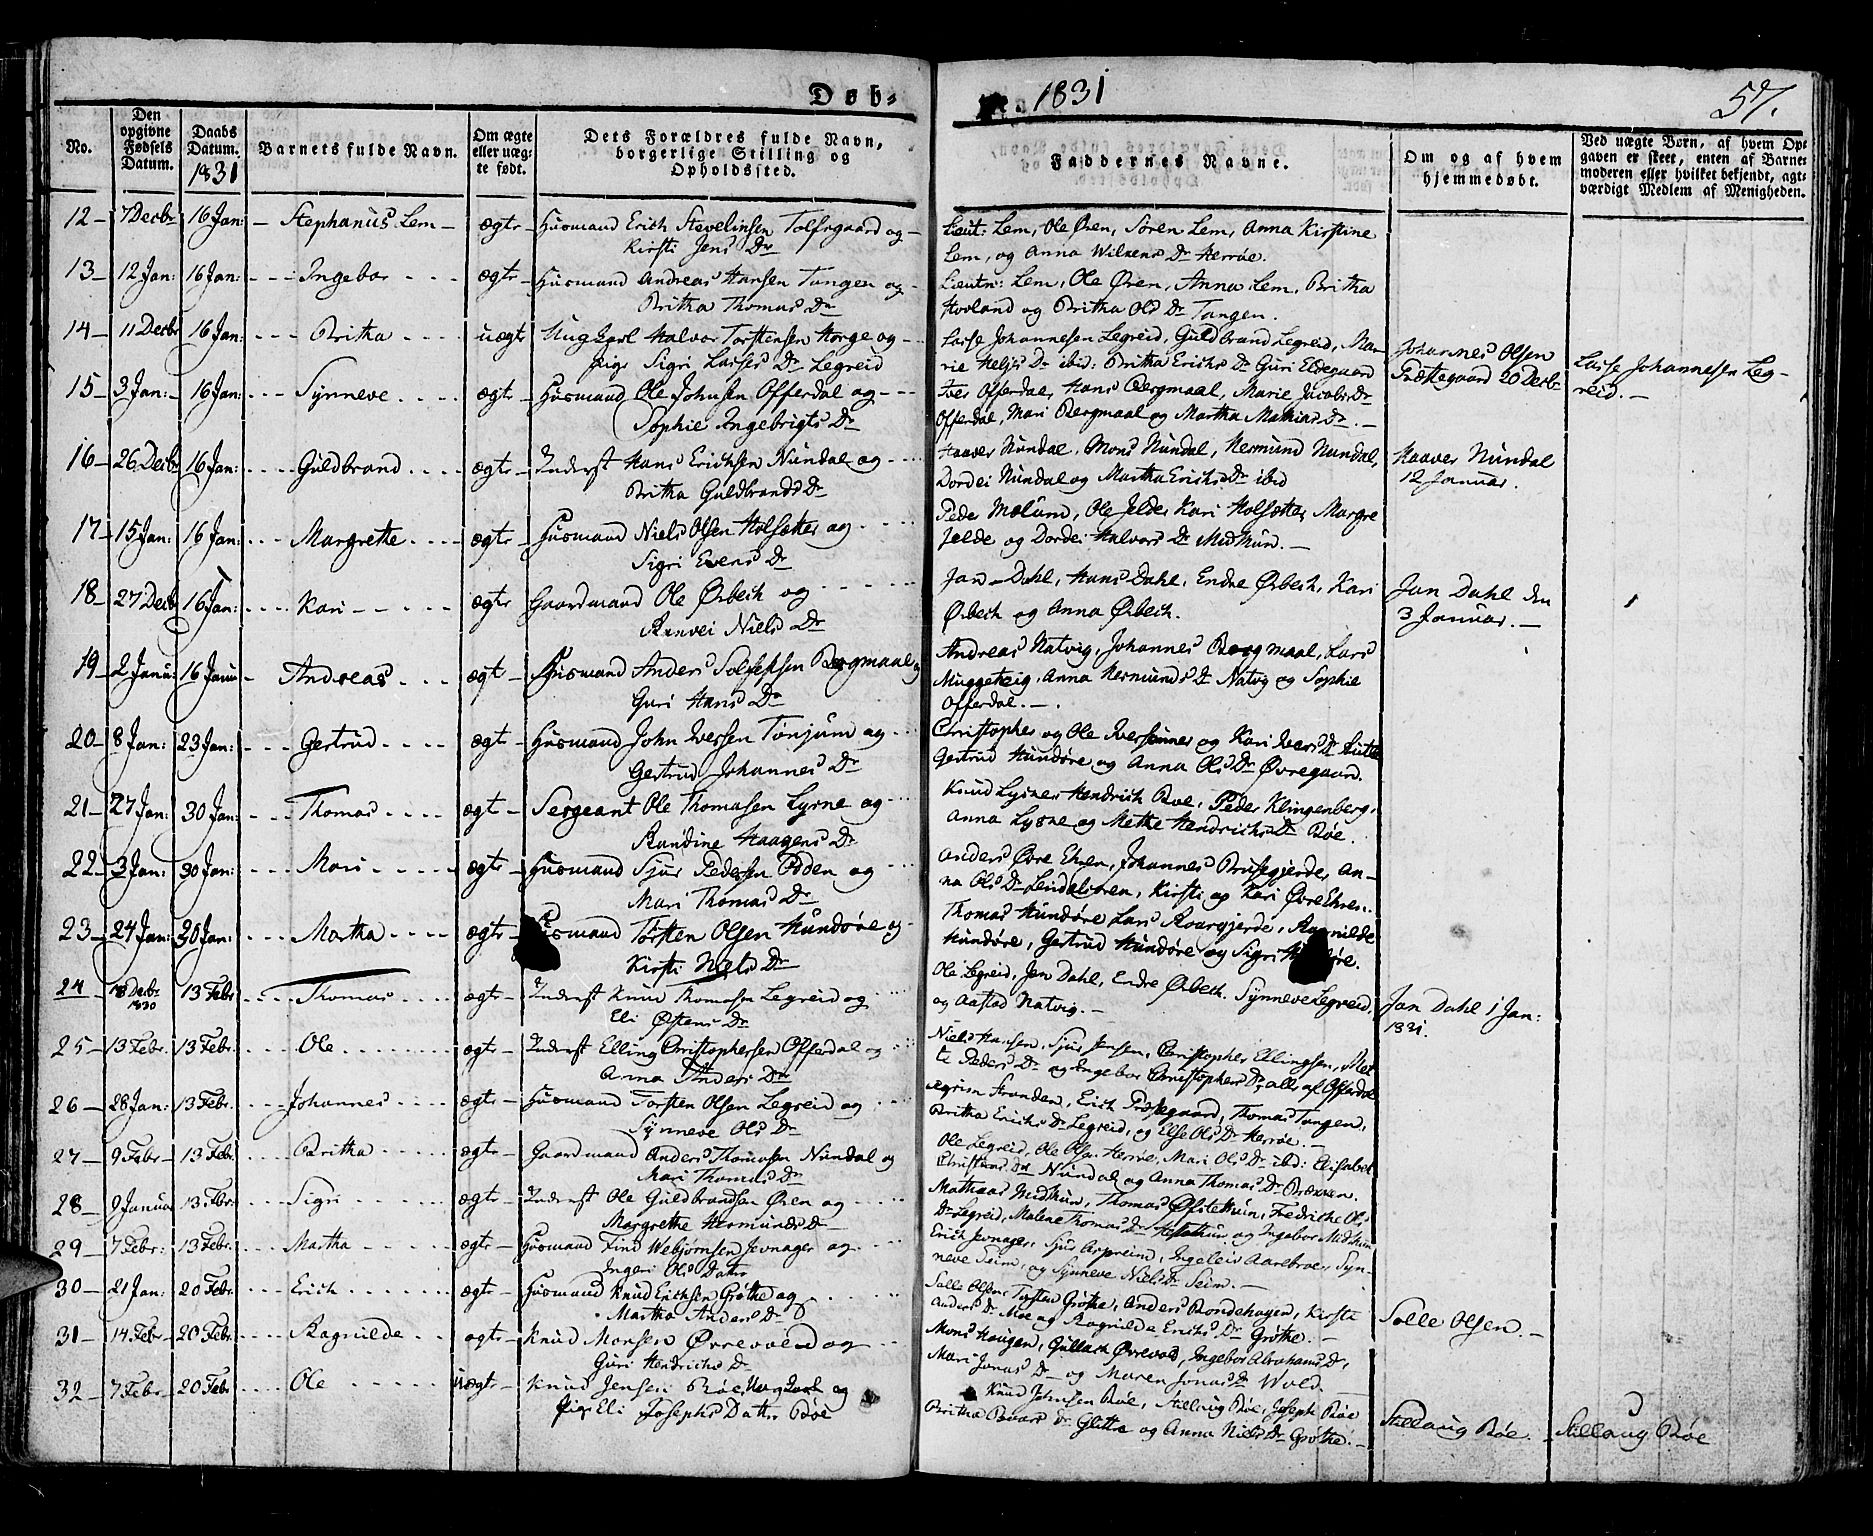 Døb-
1831
57.
No.
Den opgivne Fødsels Datum.
Daabs Datum. 1831
Barnets fulde Navn.
Om ægte eller uægte født.
Dets Forældres fulde Navn, borgerlige Stilling og Opholdssted.
Faddernes Navne.
Om og af hvem hjemmedøbt.
Ved uægte Børn, af hvem Opgaven er skeet, enten af Barnemoderen eller hvilket bekjendt, agtværdigt Medlem af Menigheden.
12 - 7 Decbr 16 Jan: - Stephanus Lem - ægte - Huusmand Erich Stevelinsen Tolfsgaard og
Kirsti Jens Dr
Lieut: Lem, Ole Øren, Søren Lem, Anna Kirstine
Lem, og Anna Wilkens Dr Herrøe.
13 - 12 Jan: 16 Jan: - Ingebor - ægte - Huusmand Andreas Hansen Tangen og
Britha Thomas Dr
Lieutn: Lem, Ole Øren, Anna Lem, Britha
Hovland og Britha Ols Dr Tangen.
14 - 11 Decbr 16 Jan: - Britha - uægte Ung Karl Halvor Torstensen Horge og
Pige Sigri Lasses Dr Legreid
Lasse Johannesen Legreid, Guldbrand Legreid, Ma-
rie Heljes Dr ibid: Britha Erichs Dr Guri Eldegaard
Johannes Olsen
Præstegaard 20 Decbr
Lasse Johannesen Leg-
reid. -
15 - 3 Jan: - 16 Jan: - Synneve - ægte - Huusmand Ole Johnsen Offerdal og
Sophie Ingebrigts Dr
Iver Offerdal, Hans Bergmaal, Marie Jacobs Dr
Offerdal, Mari Bergmaal og Martha Mathias Dr. -
16 - 26 Decbr 16 Jan: - Guldbrand - ægte - Inderst Hans Erichsen Nundal og
Britha Guldbrands Dr
Haaver Nundal, Mons Nundal, Hermund Nundal,
Dordei Nundal og Martha Erichs Dr ibid
Haaver Nundal
12 Januar.
17 - 15 Jan: 16 Jan: - Margrethe - ægte - Huusmand Niels Olsen Holsætter og
Sigri Evens Dr
Peder Molum, Ole Jelde, Kari Holsætter, Margre
Jelde og Dordei Halvors Dr Midthun. -
18 - 27 Decb 16 Jan: - Kari - ægte Gaardmand Ole Ørbech og
Ranvei Niels Dr
Jan Dahl, Hans Dahl, Endre Ørbech, Kari
Ørbech og Anna Ørbech.
Jan Dahl den
3 Januar. -
19 - 2 Janu: 16 Janu - Andreas - ægt - Huusmand Anders Solfestsen Bergmaal og
Guri Hans Dr
Andreas Natvig, Johannes Bergmaal, Lars
Muggeteig, Anna Hermunds Dr Natvig og Sophie
Offerdal. -
20 - 8 Jan: 23 Jan: - Gertrud - ægt - Huusmand John Iversen Tønjum og
Gertrud Johannes Dr
Christopher og Ole Iversønner og Kari Ivers Dr
Gertrud Hundøre og Anna Ols Dr Øvregaard.
21 - 27 Jan: 30 Jan: - Thomas - ægt - Sergeant Ole Thomasen Lysne og
Randine Haagens Dr
Knud Lysne, Hendrich Boe, Peder Klingenberg,
Anna Lysne og Methe Hendrichs Dr Bøe.
22 - 3 Jan: 30 Jan: - Mari - ægte - Huusmand Sjur Pedersen Odden og
Mari Thomas Dr
Anders Øvre Ehren, Johannes Brusegjerde, An-
na Ols Dr Leirdalsøren, Kirsti og Kari Øvre Ehren.
23 - 24 Jan: 30 Jan: - Martha - ægte - Huusmand Torsten Olsen Hundøre og
Kirsti Niels Dr
Thomas Hundøre, Lars Kvargjerde, Ragnilde
Hundøre, Gertrud Hundøre og Sigri Hundøre.
24 - 18 Decbr 1830 13 Febr - Thomas - ægte - Inderst Knud Thomasen Legreid og
Eli Østens Dr
Ole Legreid, Jan Dahl, Endre Ørbech, Synneve Legreid,
og Aastad Natvig. -
Jan Dahl 1 Jan:
1831.
25 - 13 Febr. 13 Febr. - Ole - ægte - Inderst Elling Christophersen Offerdal og
Anna Anders Dr
Niels Hansen, Sjur Jensen, Christopher Ellingsen, Met-
te Peders Dr og Ingebor Christophers Dr, alle af Offerdal
26 - 28 Jan: 13 Febr. - Johannes - ægte - Huusmand Torsten Olsen Legreid og
Synneve Ols Dr
Stranden, Erich Præstegaard, Thomas Tangen,
Britha Erichs Dr Legreid, og Else Ols Dr Herrøe. -
27 - 9 Febr - 13 Febr. - Britha - ægte - Gaardmand Anders Thomasen Nundal og
Mari Thomas Dr
Ole Legreid, Ole Olsen Herrøe, Mari Ols Dr ibid: Elisabet
Christens Dr Nundal og Anna Thomas Dr
28 - 9 Januar 13 Febr. - Sigri - ægte - Inderst Ole Guldbrandsen Øren og
Margrethe Hermunds Dr
Mathias Midthun, Thomas Øfstethun, Fredriche Ols
Dr Legreid, Malene Thomas Dr og Ingebor Midthun
29 - 7 Febr: 13 Febr. - Martha - ægte - Huusmand Find Webjørnsen Jevnager og
Ingeri Ols Datter
Erich Jevnager, Sjur Asperim, Ingeleiv Aarebroe, Syn-
neve Seim, og Synneve Niels Dr Seim. -
30 - 21 Jan: 20 Febr. - Erich - ægte - Huusmand Knud Erichsen Grøthe og
Martha Anders Dr
Salle Olsen, Torsten Grøthe, Anders Bondehagen, Kirste
Anders Dr Moe og Ragnilde Erichs Dr Grøthe. -
Salle Olsen. -
31 - 14 Febr - 20 Febr. - Ragnilde - ægte - Knud Monsen Øvrevold og
Guri Hendrichs Dr
Mons Haugen, Gullach Øvrevold, Ingebor Abrahams Dr,
Mari Jonas Dr og Maren Jonas Dr Wold.
32 - 7 Febr - 20 Febr - Ole - uægte - Knud Jensen Bøe, Ung Karl og
Pige Eli Josephs Datter Bøe
Knud Johnsen Bøe, Stillaug Bøe, Joseph Bøe
Britha Boars Dr Glette og Anna Niels Dr Grøthe. -
Stillaug Bøe. -
Stillaug Bøe